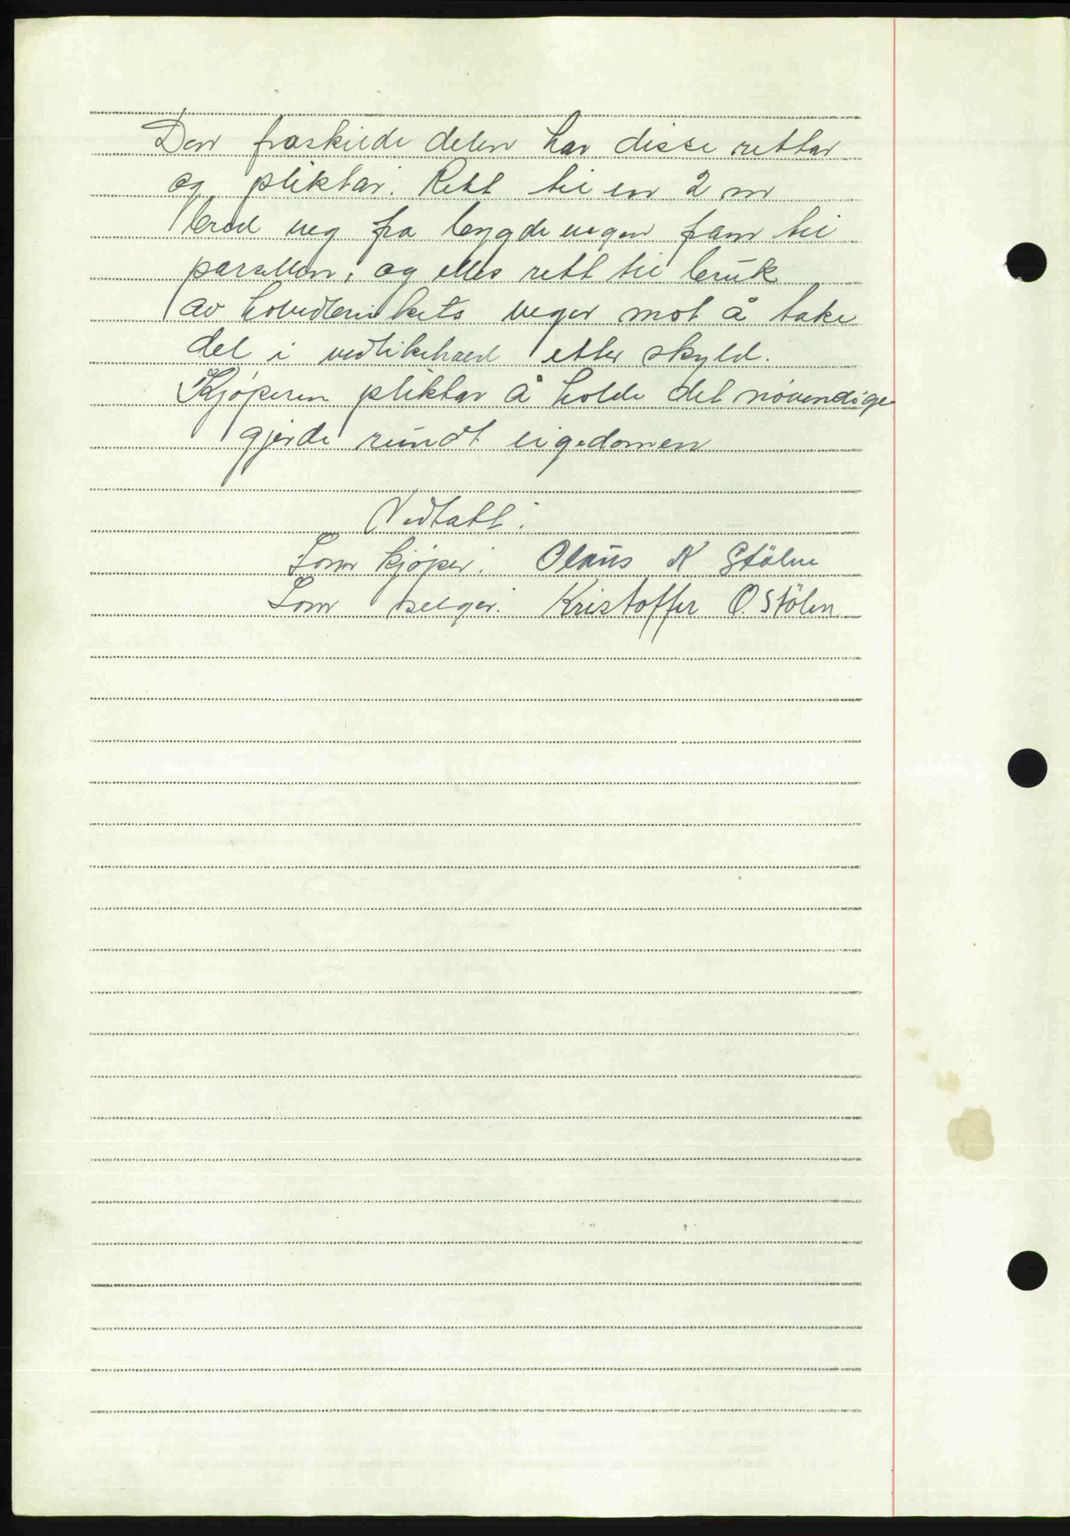 Den fraskilde delen har disse rettar
og pliktar. Rett til en 2 m
bred veg fra bygdevegen fram til
parsellen, og elles rett til bruk
av hovedbrukets veger mot å take
del i vedlikehald etter skyld.
Kjøperen pliktar å holde det nøvendige
gjerde rundt eigedomen
Vedtatt:
Som kjøper: Olaus K Stölen
Som selger: Kristoffer O. Stölen